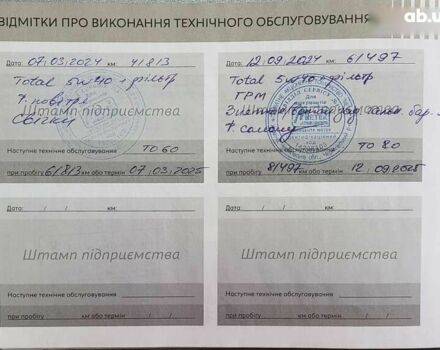 ab.ua
ВІДМІТКИ ПРО ВИКОНАННЯ ТЕХНІЧНОГО ОБСЛУГОВУВАННЯ
Дата: 07.03.2024 км: 41813
Total 5w40 + фільтр
ф. повітря
Свічки
Штамп підприємства
Наступне технічне обслуговування ТО 60
при пробігу 61813 км або термін 07.03.2025
Дата: 12.09.2024 км: 61497
Total 5w40 + фільтр
ГРМ
бар.
ф. салону
Штамп підприємства
Наступне технічне обслуговування ТО 80
при пробігу 81497 км або термін 12.09.2025
Дата: / / км:
Штамп підприємства
Наступне технічне обслуговування
при пробігу км або термін / /
Дата: / / км:
Штамп підприємства
Наступне технічне обслуговування
при пробігу км або термін / /